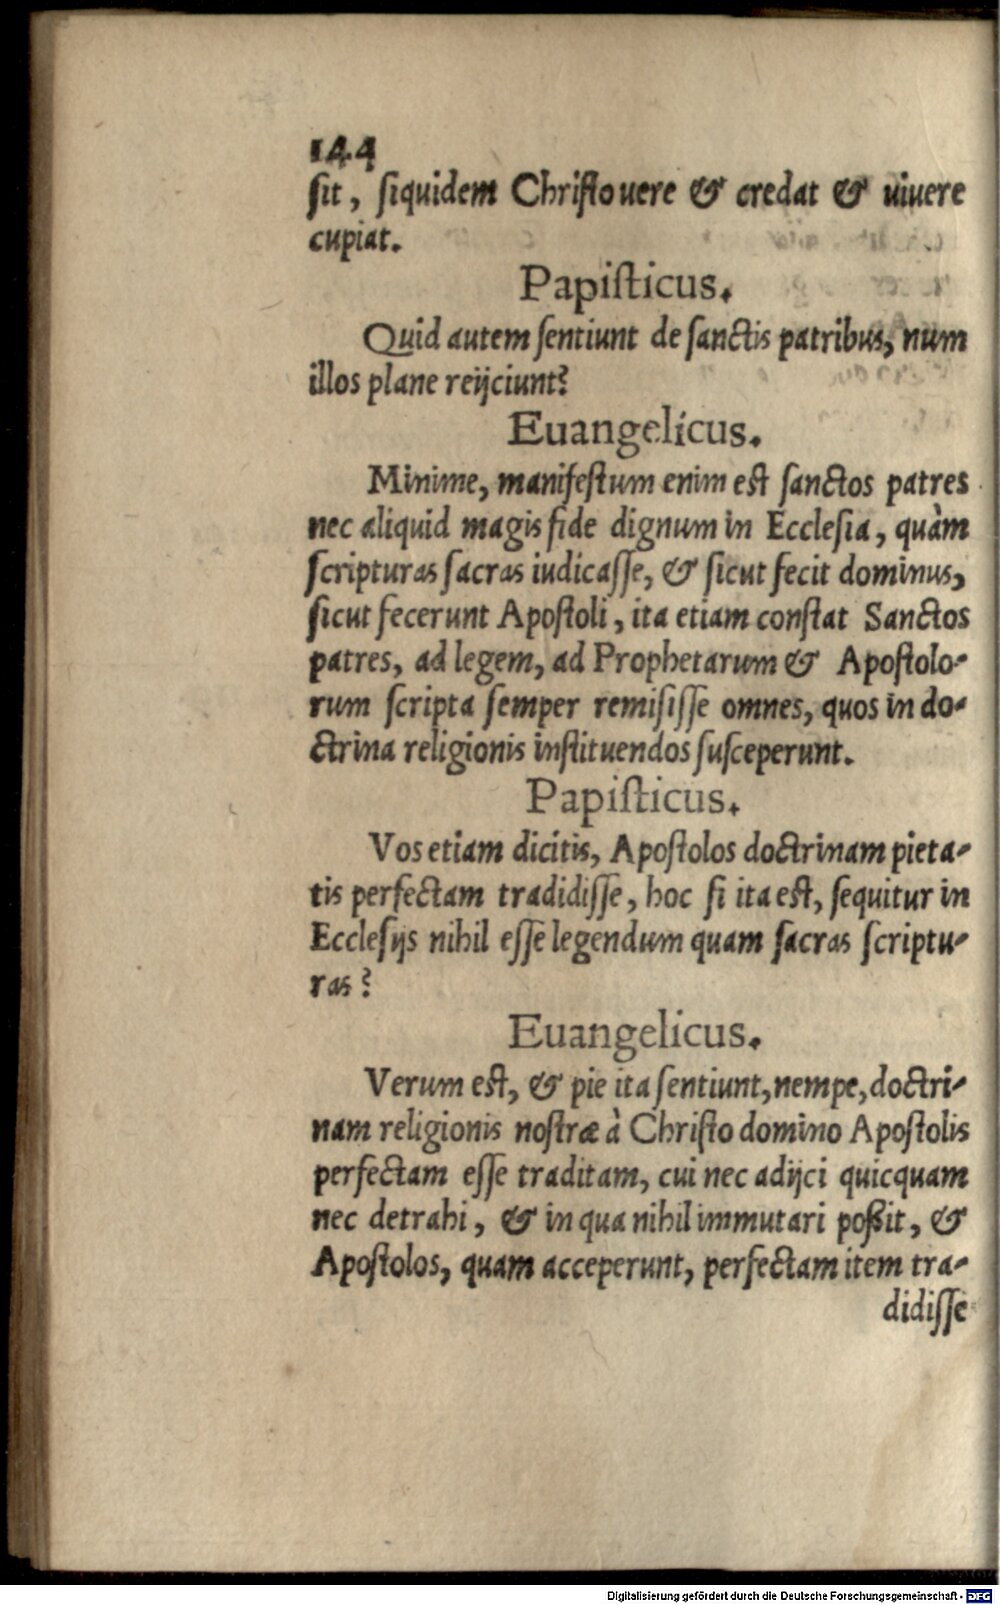 144
ſit, ſiquidem Chriſto uere & credat & uiuere
cupiat.
Papiſticus.
Quid autem ſentiunt de ſanctis patribus, num
illos plane reijciunt?
Euangelicus.
Minime, manifeſtum enim eſt ſanctos patres
nec aliquid magis fide dignum in Eccleſia, quàm
ſcripturas ſacras iudicaſſe, & ſicut fecit dominus,
ſicut fecerunt Apoſtoli, ita etiam conſtat Sanctos
patres, ad legem, ad Prophetarum & Apoſtolo-
rum ſcripta ſemper remiſiſſe omnes, quos in do-
ctrina religionis inſtituendos ſuſceperunt.
Papiſticus.
Vos etiam dicitis, Apoſtolos doctrinam pieta-
tis perfectam tradidiſſe, hoc ſi ita eſt, ſequitur in
Eccleſijs nihil eſſe legendum quam ſacras ſcriptu-
ras?
Euangelicus.
Verum eſt, & pie ita ſentiunt, nempe, doctri-
nam religionis noſtræ à Chriſto domino Apoſtolis
perfectam eſſe traditam, cui nec adijci quicquam
nec detrahi, & in qua nihil immutari poßit, &
Apoſtolos, quam acceperunt, perfectam item tra-
didiſſe
Digitalisierung gefördert durch die Deutsche Forschungsgemeinschaft - DFG